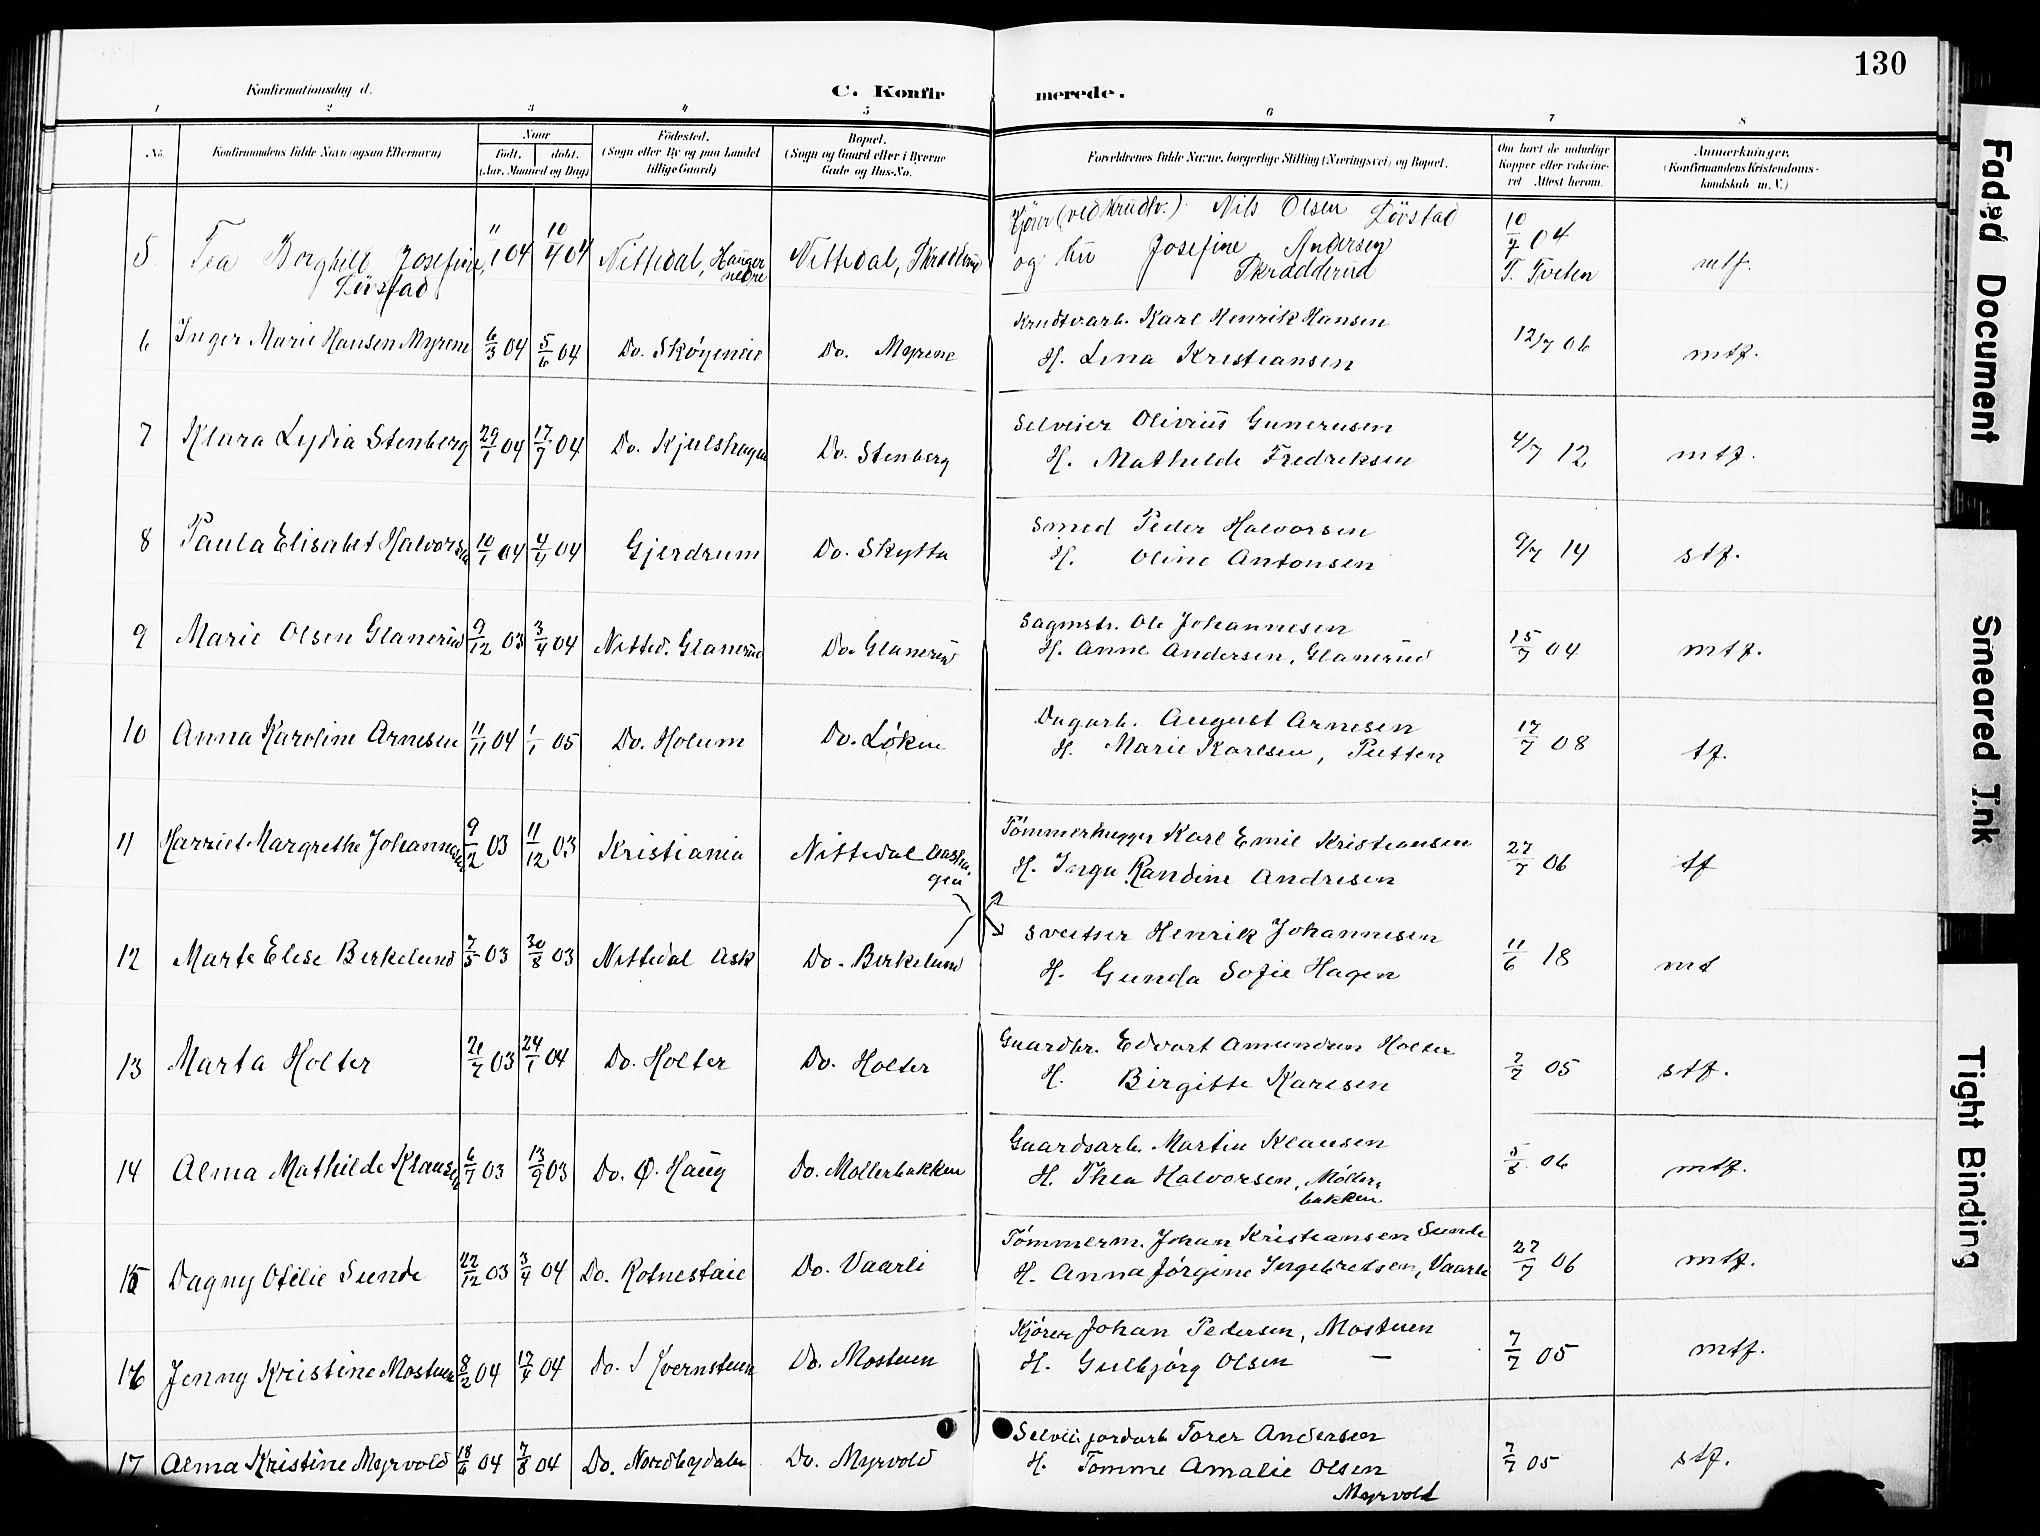 130
Konfirmationsdag d.
C. Konfirmerede.
1 2 3 4 5 6 7 8
No. Konfirmandens fulde Navn (ogsaa Efternavn) Naar Født. døbt. (Aar, Maaned og Dag) Fødested. (Sogn eller By og paa Landet tillige Gaard) Bopæl. (Sogn og Gaard eller i Byerne Gade og Hus-No. Forældrenes fulde Navne, borgerlige Stilling (Næringsvei) og Bopæl. Om havt de naturlige Kopper eller vaccineret Attest herom. Anmærkninger. (Konfirmandens Kristendomskundskab m. V.)
5 Tea Borghild Josefine Løvstad 11/1 04 10/4 04 Nittedal, Hauger nedre Nittedal, Skrædderud Kjører (ved Krudtv.) Nils Olsen Løvstad og hu Josefine Andersen Skrædderud 10/7 04 T. Tveten mtf.
6 Inger Marie Hansen Myrene 6/3 04 5/6 04 Do. Skøyeneie Do. Myrene Krudtv.arb. Karl Henrik Hansen H. Lina Kristiansen 12/7 06 mtf.
7 Klara Lydia Stenberg 29/1 04 17/7 04 Do. Kjulshagen Do. Stenberg Selveier Olivius Gunerusen H. Mathilde Fredriksen 4/7 12 mtf.
8 Paula Elisabet Halvorsen 10/1 04 4/4 04 Gjerdrum Do. Skytta Smed Peder Halvorsen H. Oline Antonsen 9/7 14 stf.
9 Marie Olsen Glanerud 9/12 03 3/4 04 Nitted. Glanerud Do. Glanerud Sagmstr. Ole Johannesen H. Anne Andersen, Glanerud 15/7 04 mtf.
10 Anna Karoline Arnesen 11/11 04 1/1 05 Do. Holum Do. Løken Dagarb. August Arnesen H. Marie Karlsen, Putten 17/7 08 tf.
11 Harriet Margrethe Johannesen 9/2 03 11/12 03 Kristiania Nittedal Aashagen Tømmerhugger Karl Emil Kristiansen H. Inga Randine Andresen 27/7 06 tf
12 Marte Elise Birkelund 7/5 03 30/8 03 Nittedal Ask Do. Birkelund Sveitser Henrik Johannesen H. Gunda Sofie Hagen 11/6 18 mt
13 Marta Holter 21/7 03 24/1 04 Do. Holter Do. Holter Gaardbr. Edvart Amundsen Holter H. Birgitte Karlsen 7/7 05 stf.
14 Alma Mathilde Klausen 6/7 03 13/9 03 Do. Ø. Haug Do. Møllerbakken Gaardsarb. Martin Klausen H. Thea Halvorsen, Møllerbakken. 5/8 06 mtf.
15 Dagny Otilie Sunde 22/12 03 3/4 04 Do. Rotneståie Do. Vaarli Tømmerm. Johan Kristiansen Sunde H. Anna Jørgine Ingebretsen, Vaarli 27/7 06 mtf.
16 Jenny Kristine Mostuen 8/2 04 17/4 04 Do. Kvernstuen Do. Mostuen Kjører Johan Pedersen, Mostuen H. Gulbjørg Olsen — 7/7 05 mtf.
17 Alma Kristine Myrvold 18/6 04 7/8 04 Do. Nordbydalen Do. Myrvold Selvei. jordarb Torer Andersen H. Tomme Amalie Olsen Myrvold 7/7 05 stf.
Faded Document
Smeared Ink
Tight Binding